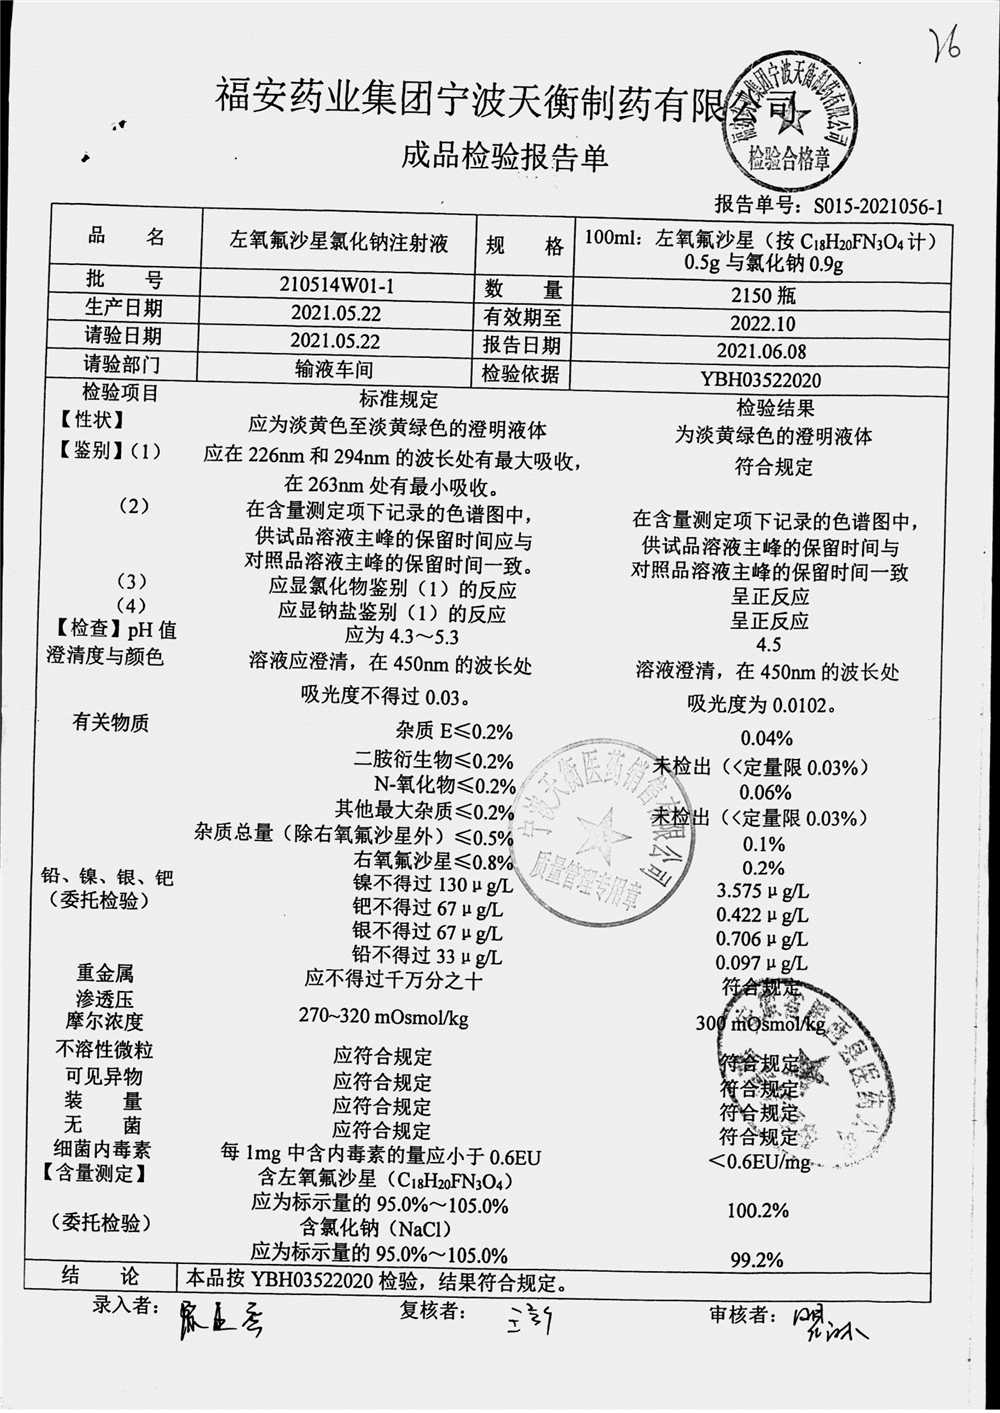 26
福安药业集团宁波天衡制药有限公司
检验合格章
成品检验报告单
报告单号：S015-2021056-1
品 名 左氧氟沙星氯化钠注射液 规 格 100ml：左氧氟沙星（按 C18H20FN3O4 计）
0.5g 与氯化钠 0.9g
批 号 210514W01-1 数 量 2150 瓶
生产日期 2021.05.22 有效期至 2022.10
请验日期 2021.05.22 报告日期 2021.06.08
请验部门 输液车间 检验依据 YBH03522020
检验项目 标准规定 检验结果
【性状】 应为淡黄色至淡黄绿色的澄明液体 为淡黄绿色的澄明液体
【鉴别】（1） 应在 226nm 和 294nm 的波长处有最大吸收， 符合规定
在 263nm 处有最小吸收。
（2） 在含量测定项下记录的色谱图中， 在含量测定项下记录的色谱图中，
供试品溶液主峰的保留时间应与 供试品溶液主峰的保留时间与
对照品溶液主峰的保留时间一致。 对照品溶液主峰的保留时间一致
（3） 应显氯化物鉴别（1）的反应 呈正反应
（4） 应显钠盐鉴别（1）的反应 呈正反应
【检查】pH 值 应为 4.3～5.3 4.5
澄清度与颜色 溶液应澄清，在 450nm 的波长处 溶液澄清，在 450nm 的波长处
吸光度不得过 0.03。 吸光度为 0.0102。
有关物质 杂质 E≤0.2% 0.04%
二胺衍生物≤0.2% 未检出（<定量限 0.03%）
N-氧化物≤0.2% 0.06%
其他最大杂质≤0.2% 未检出（<定量限 0.03%）
杂质总量（除右氧氟沙星外）≤0.5% 0.1%
右氧氟沙星≤0.8% 0.2%
宁波天衡医药销售有限公司
质量管理专用章
铅、镍、银、钯 镍不得过 130μg/L 3.575μg/L
（委托检验） 钯不得过 67μg/L 0.422μg/L
银不得过 67μg/L 0.706μg/L
铅不得过 33μg/L 0.097μg/L
重金属 应不得过千万分之十 符合规定
渗透压
摩尔浓度 270~320 mOsmol/kg 300 mOsmol/kg
不溶性微粒 应符合规定 符合规定
可见异物 应符合规定 符合规定
装 量 应符合规定 符合规定
无 菌 应符合规定 符合规定
细菌内毒素 每 1mg 中含内毒素的量应小于 0.6EU ＜0.6EU/mg
【含量测定】 含左氧氟沙星（C18H20FN3O4）
应为标示量的 95.0%～105.0% 100.2%
（委托检验） 含氯化钠（NaCl）
应为标示量的 95.0%～105.0% 99.2%
结 论 本品按 YBH03522020 检验，结果符合规定。
录入者： 复核者： 审核者：